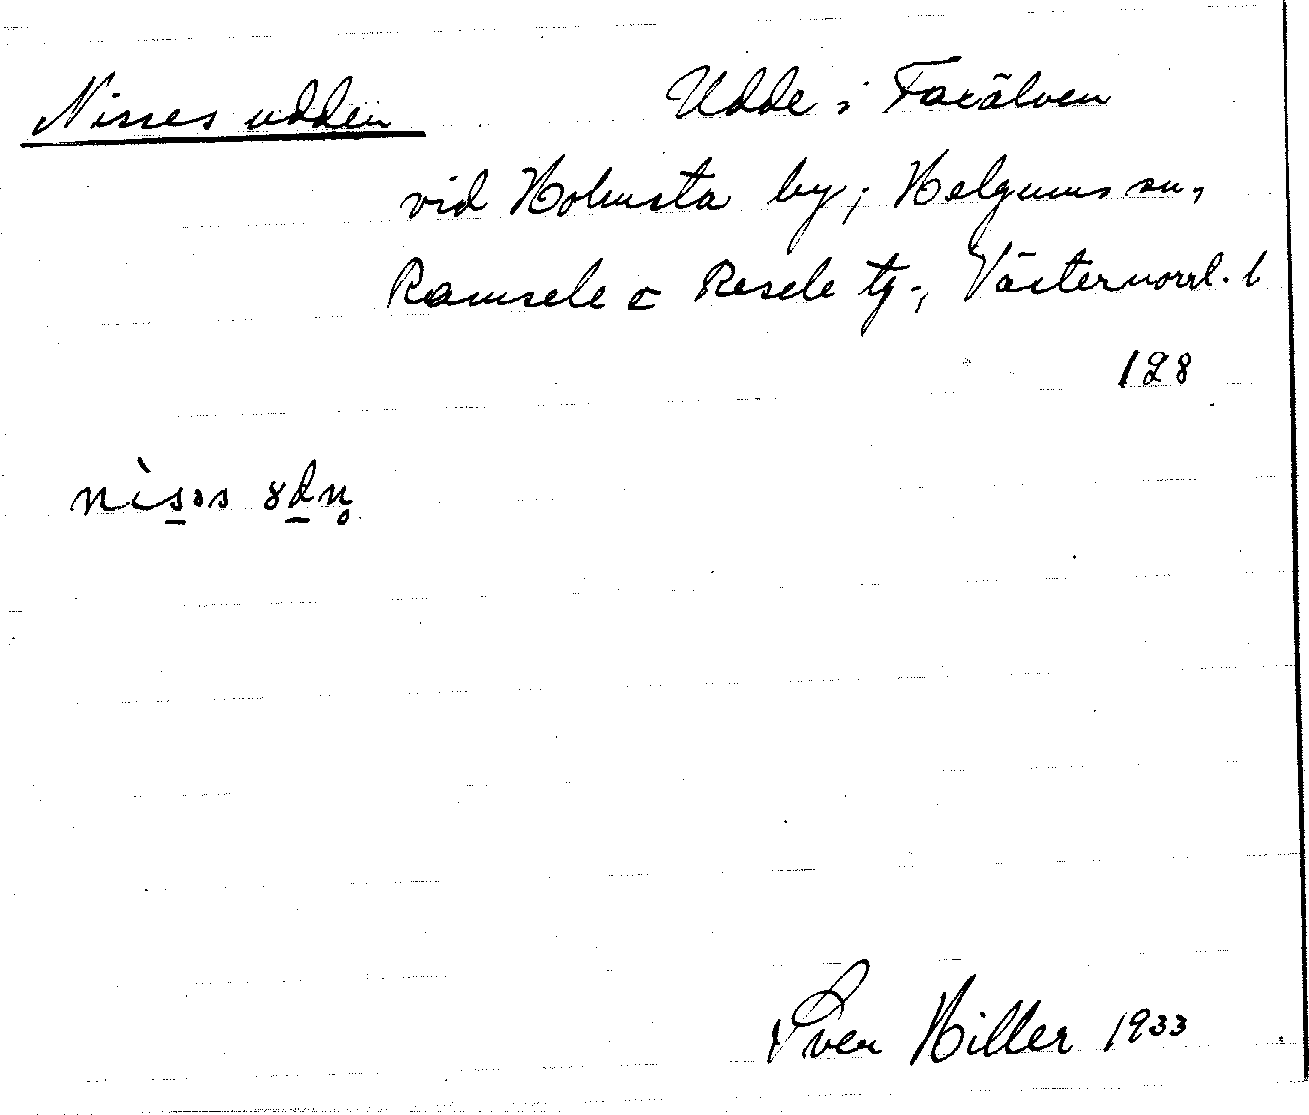 Nisses udden Udde i Faxälven
vid Holmsta by; Helgums sn,
Ramsele o Resele tg., Västernorrl. l
128
nìsəs 8dn̥
Sven Hiller 1933